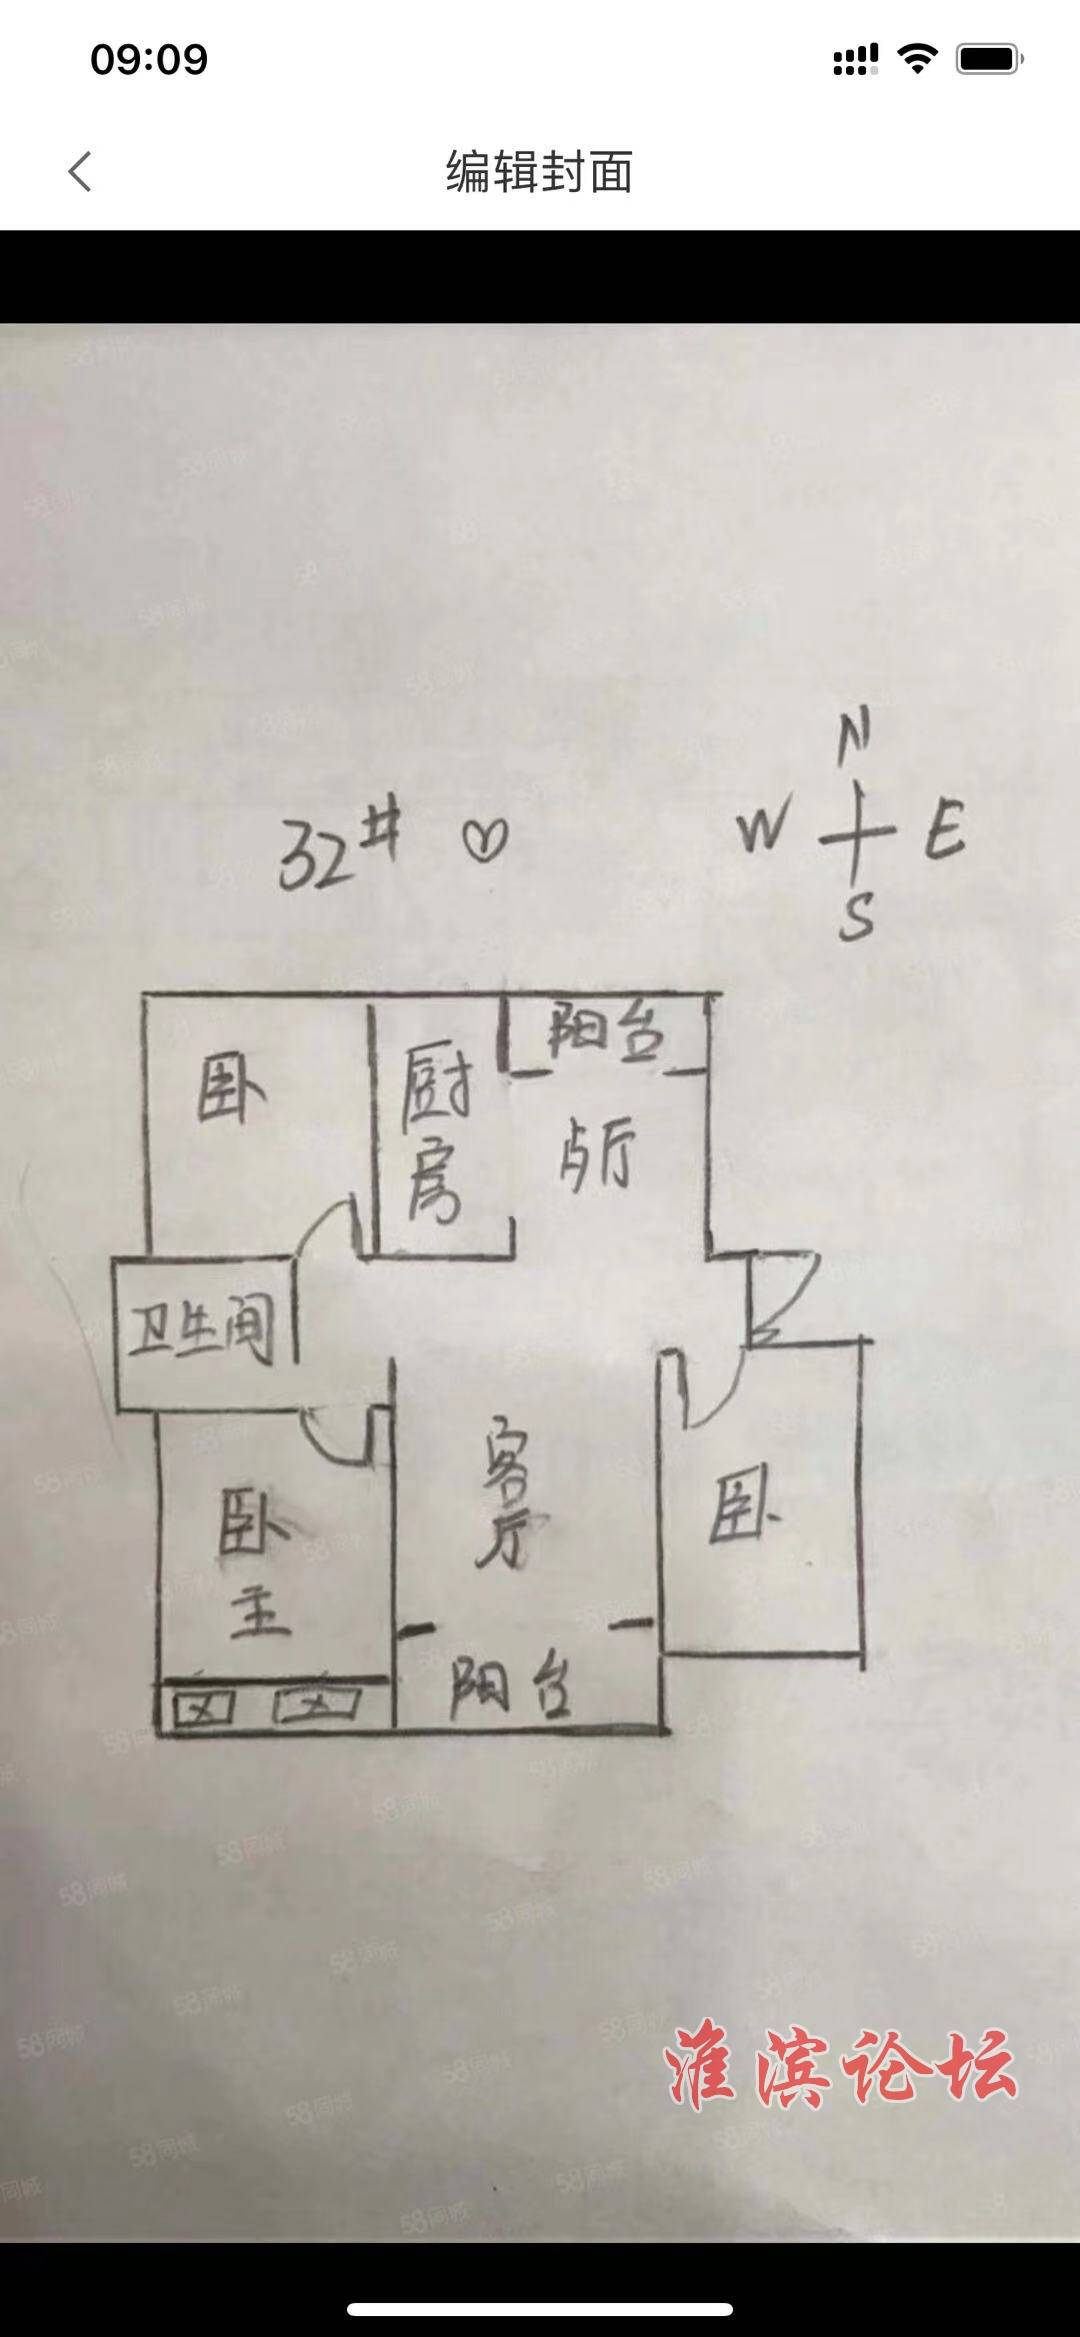 09:09
编辑封面
N
32# W E
S
阳台
卧 厨房
占厅
卫生间
客厅
卧
卧主
阳台
淮滨论坛
58同城